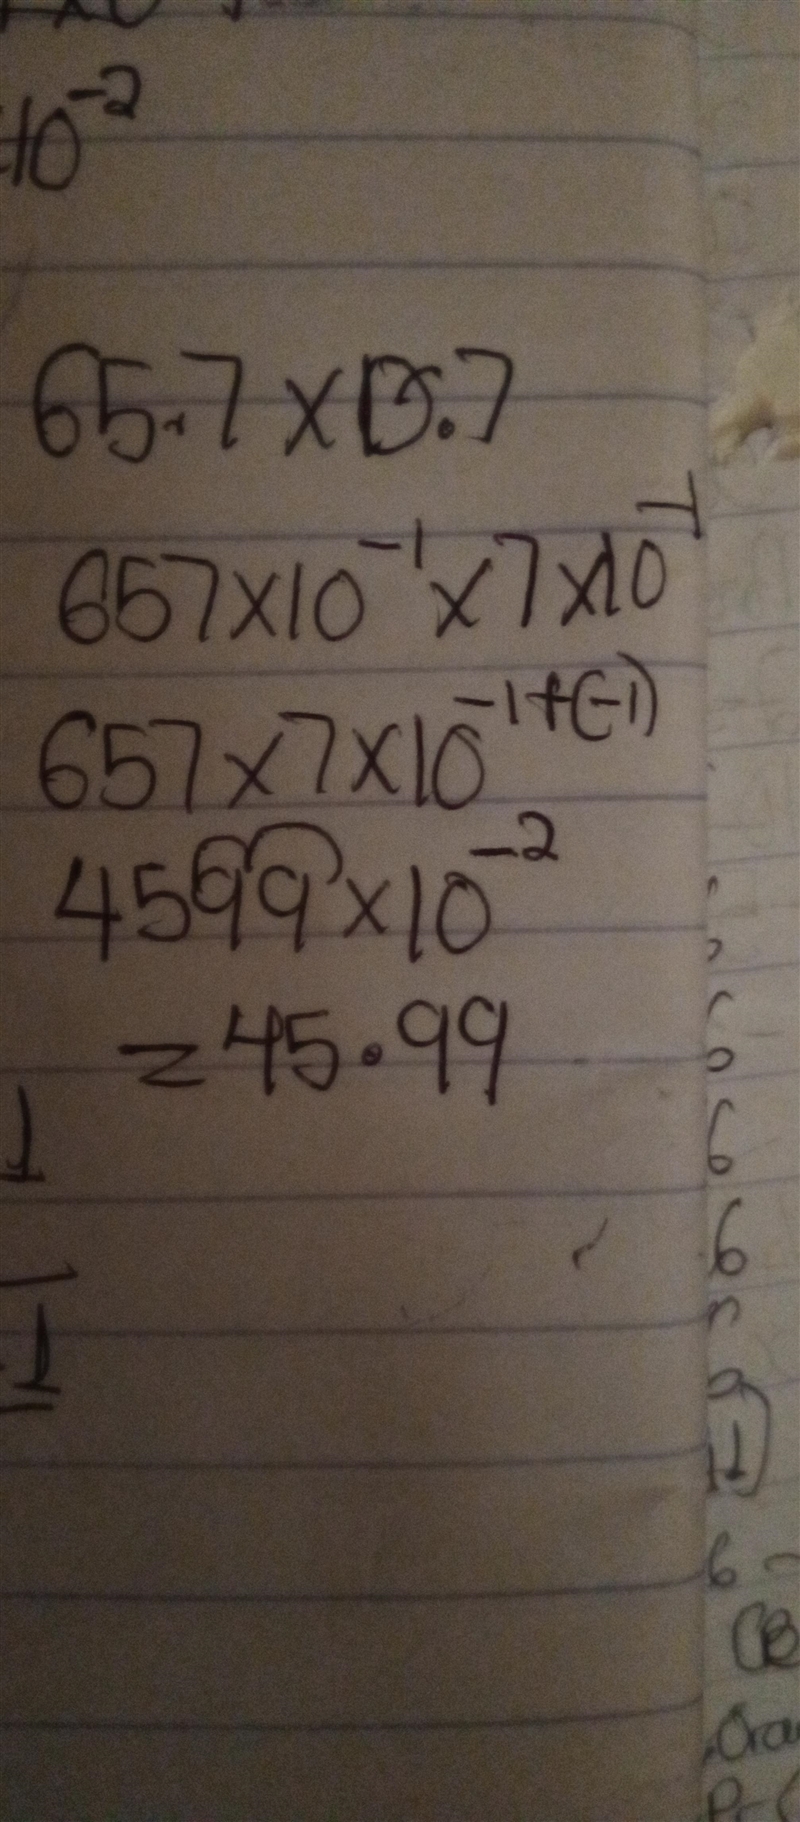 10⁻²
65.7 × 0.7
657×10⁻¹×7×10⁻¹
657×7×10⁻¹⁺⁽⁻¹⁾
4599×10⁻²
=45.99
1
1
6
6
6